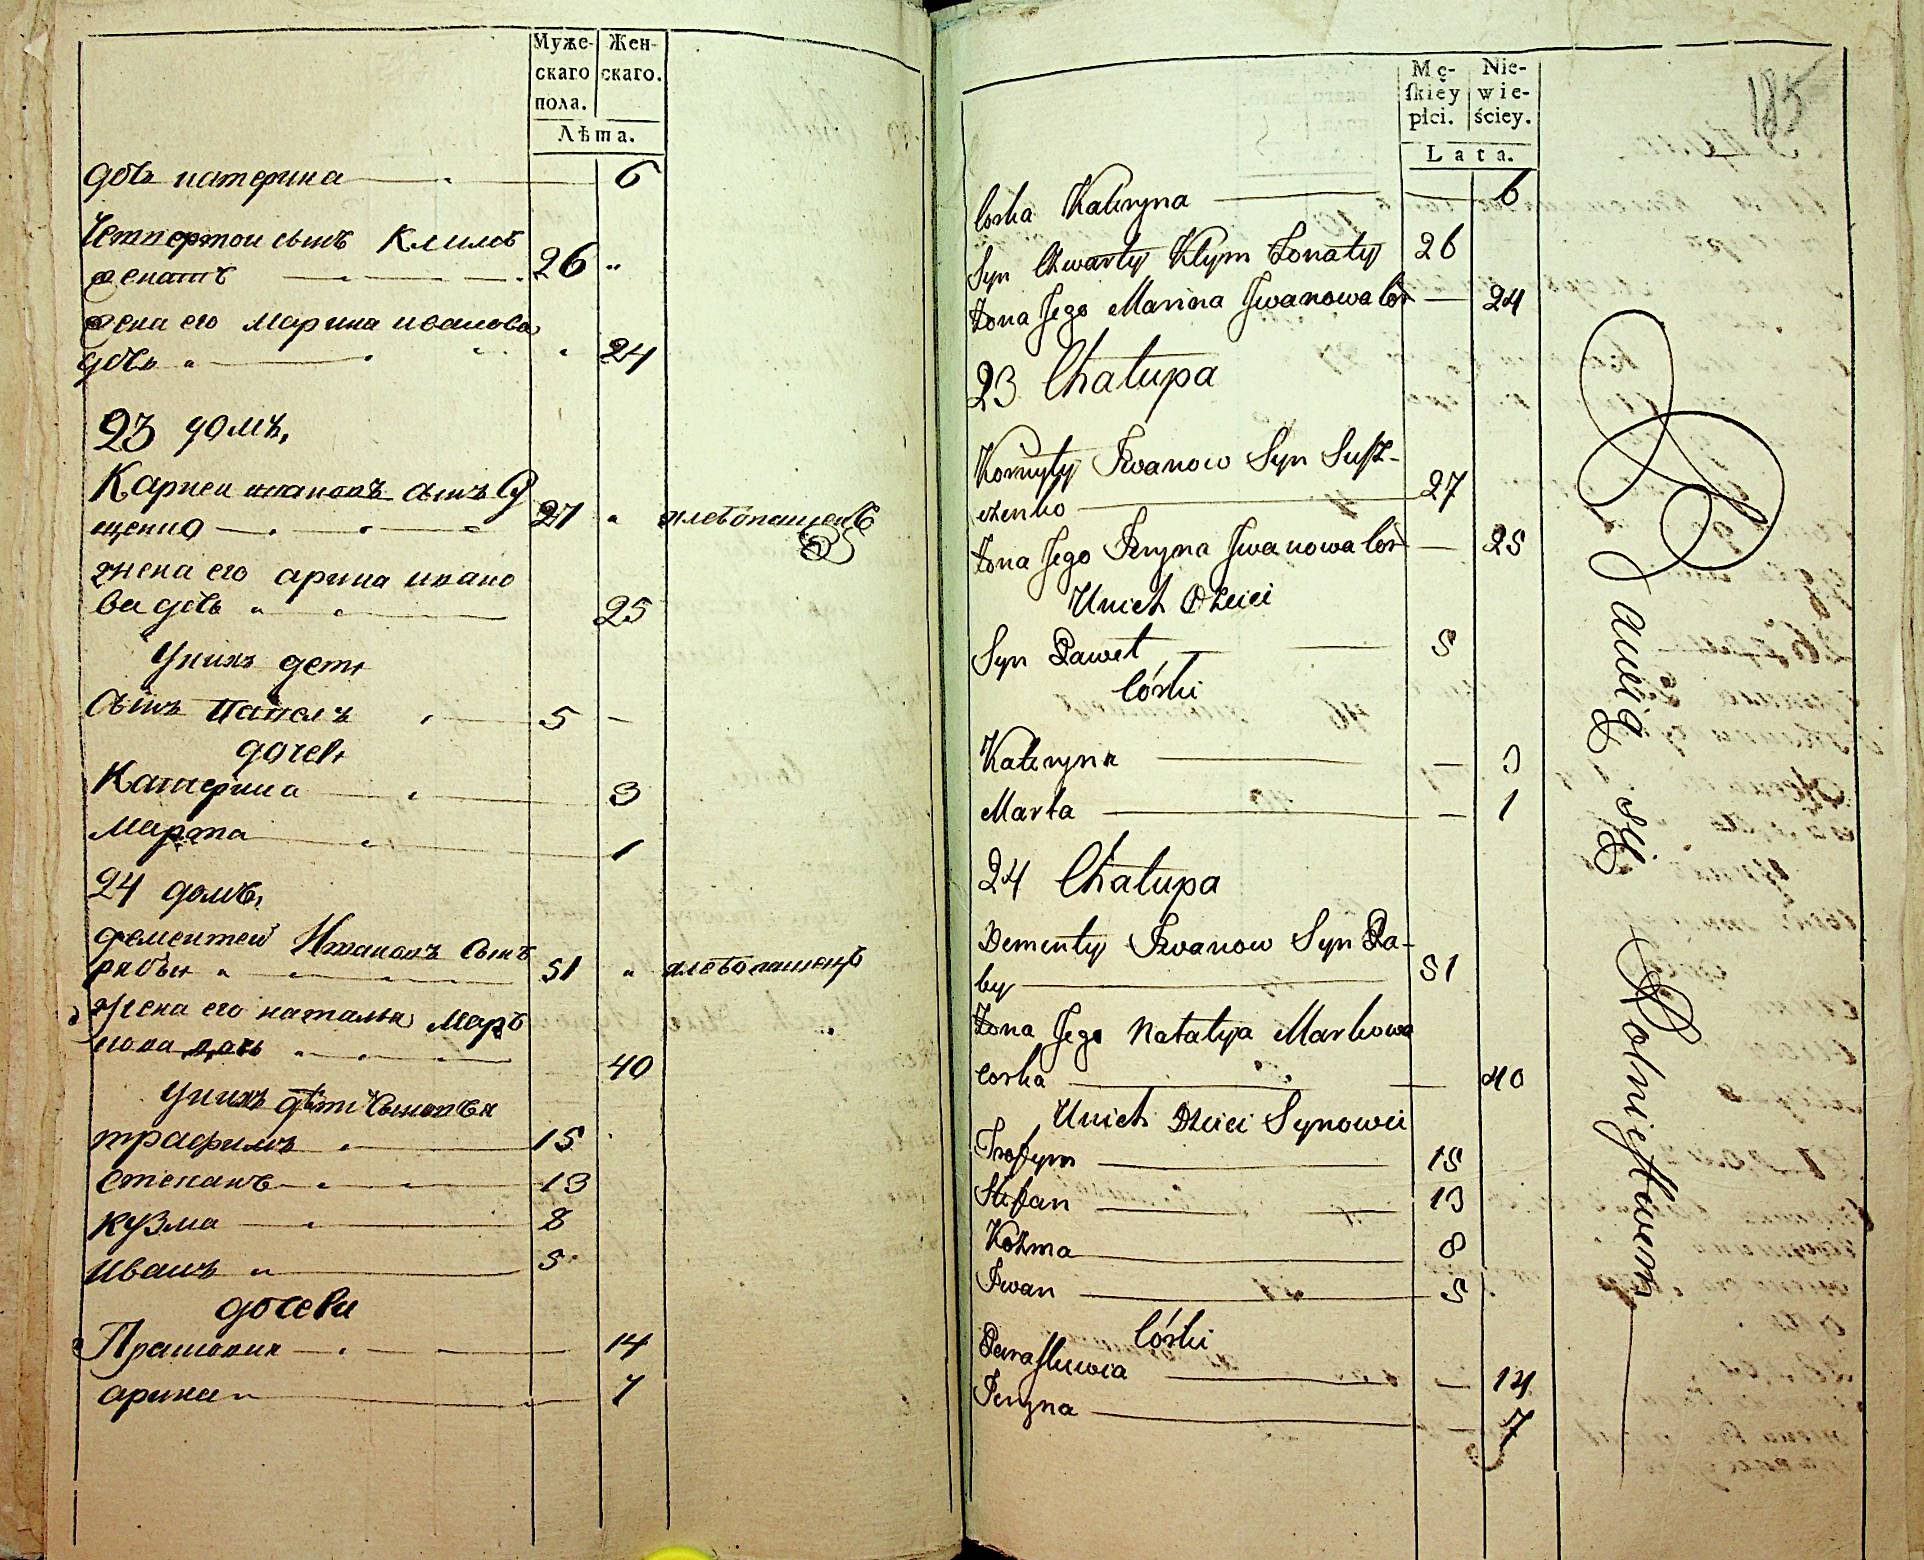 Муже-
скаго
пола.
Жен-
скаго.
Лѣта.
дочь катерина 6
Четвертои сынъ Климъ
женатъ 26
жена его Марина иванова
дочь 24
23 домъ,
Карнеи ивановъ сынъ Су
щенко 27 хлебопашецъ
жена его арина ивано
ва дочь 25
У них дети
Сынъ Павелъ 5
дочери
Катерина 3
Марта 1
24 домъ,
дементеи Ивановъ Сынъ
рабы 51 хлебопашецъ
жена его наталья Мар
кова дочь 40
У нихъ дѣти Сыновья
трафимъ 15
степанъ 13
кузма 8
иванъ 5
дочери
Прасковия 14
арина 7
Mę-
ſkiey
płci.
Nie-
wie-
ściey.
Lata.
185
Corka Kateryna 6
Syn Czwarty Klym Zonaty 26
Zona Jego Marina Jwanowa Cor 24
23 Chałupa
Kornyły Iwanow Syn Susz-
czenko 27
Zona Jego Iryna Jwanowa Cor 25
U nich Dzieci
Syn Paweł 5
Córki
Kateryna 3
Marta 1
24 Chałupa
Dementy Iwanow Syn Ra-
by 51
Zona Jego Natalya Markowa
Corka 40
U nich Dzieci Synowie
Trofym 15
Stefan 13
Kozma 8
Iwan 5
Córki
Paraskiewia 14
Iryna 7
Bawią się Rolnictwem